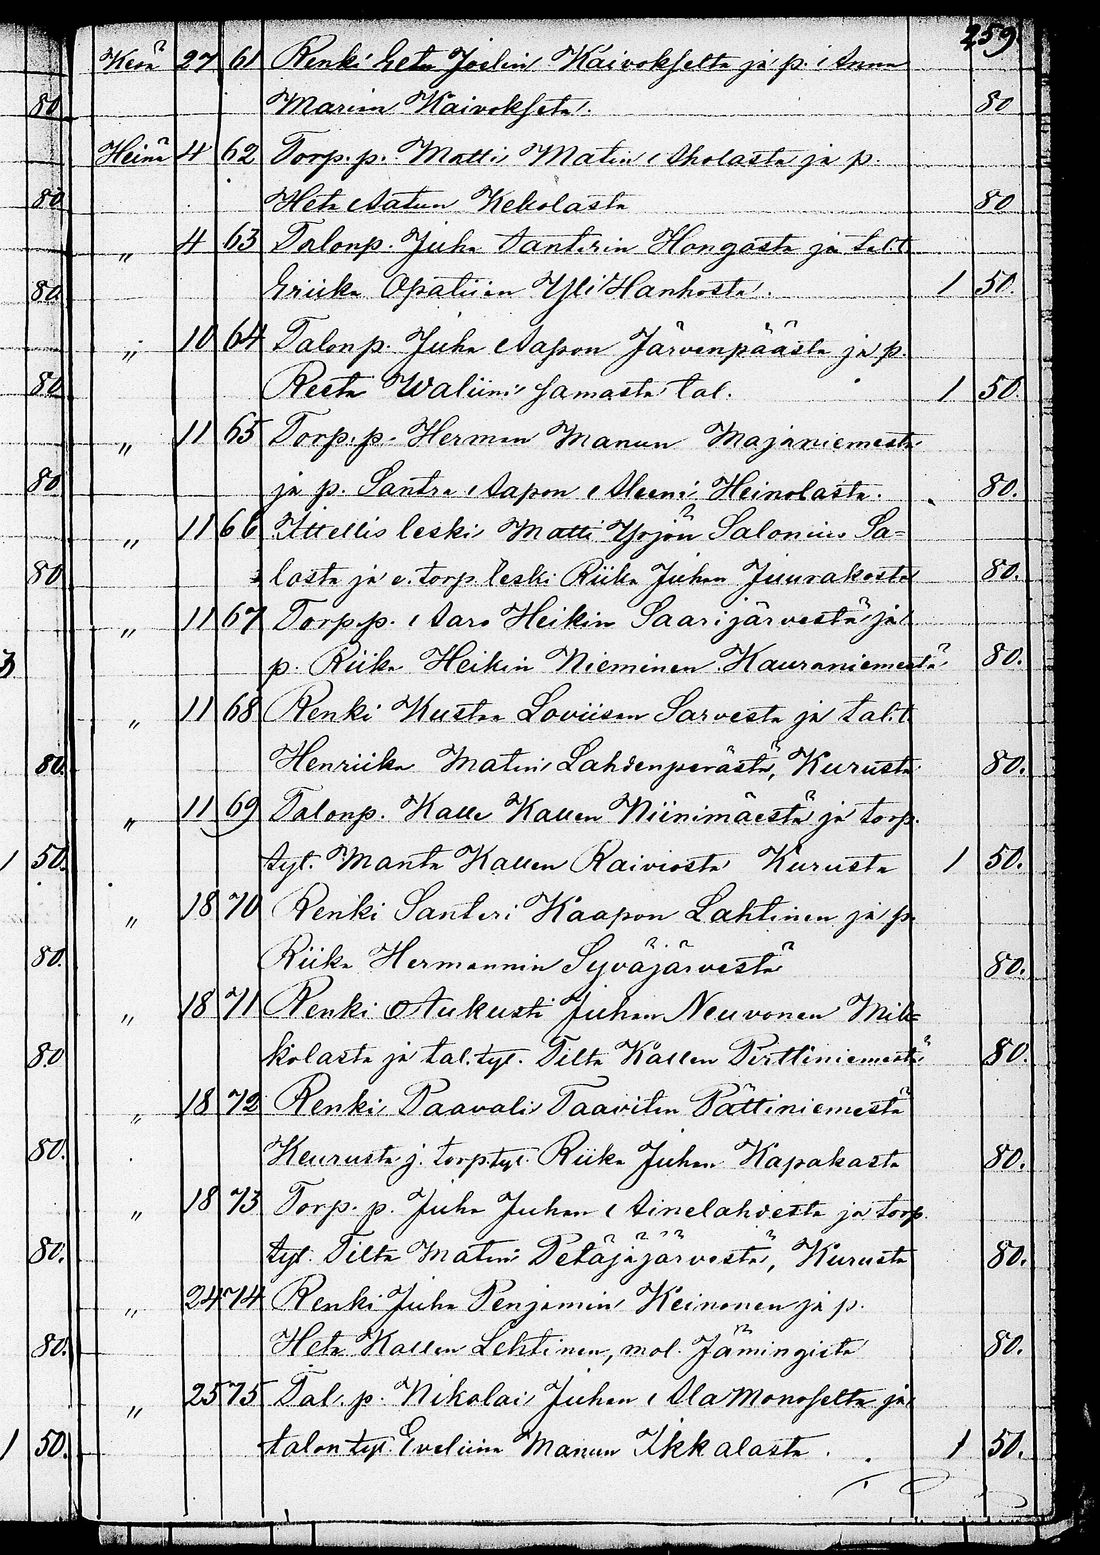 259
Kesä 27 61 Renki Eeta Joelin Kaivokselta ja p. Anna
80 Marian Kaivokseta. 80
Heinä 4 62 Torp. p. Matti Matin Aholasta ja p.
80 Heta Aatun Kekolasta 80
„ 4 63 Talonp. Juha Santerin Hongosta ja tal.t
80 Eriika Opatiian Yli Hanhosta. 1 50.
„ 10 64 Talonp. Juha Aapon Järvenpäästä ja p.
80 Reeta Waliini samasta tal. 1 50
„ 11 65 Torp. p. Herman Manun Majaniemestä
80 ja p. Santra Aapon Aleeni Heinolasta. 80.
„ 11 66 Ittellis leski Matti Yrjön Salonius Sa=
80 losta ja e. torp. leski Riika Juhan Juurakosta 80.
„ 11 67 Torp. p. Aaro Heikin Saarijärvestä ja
p. Riika Heikin Nieminen Kauraniemestä 80.
„ 11 68 Renki Kustaa Loviisan Sarvesta ja tal.t
80. Henriika Matin Lahdenperästä, Kurusta 80.
„ 11 69 Talonp. Kalle Kallen Niinimäestä ja torp.
1 50. tyt. Manta Kallen Raiviosta Kurusta 1 50.
„ 18 70 Renki Santeri Kaapon Lahtinen ja p.
80. Riika Hermannin Syväjärvestä 80.
„ 18 71 Renki Aukusti Juhan Neuvonen Mik=
80 kolasta ja tal. tyt. Tilta Kallen Perttiniemestä 80.
„ 18 72 Renki Paavali Taavitin Pättiniemestä
80. Keurusta j. torp tyt. Riika Juhan Kapakasta 80.
„ 18 73 Torp. p. Juha Juhan Ainelahdesta ja torp.
80. tyt. Tilta Matin Petäjäjärvestä, Kurusta 80.
„ 24 74 Renki Juha Penjamin Keinonen ja p.
80. Heta Kallen Lehtinen, mol. Jämingistä 80.
„ 25 75 Tal. p. Nikolai Juhan Ala Monoselta ja
1 50. talon tyt. Eveliina Manun Ikkalasta. 1 50.